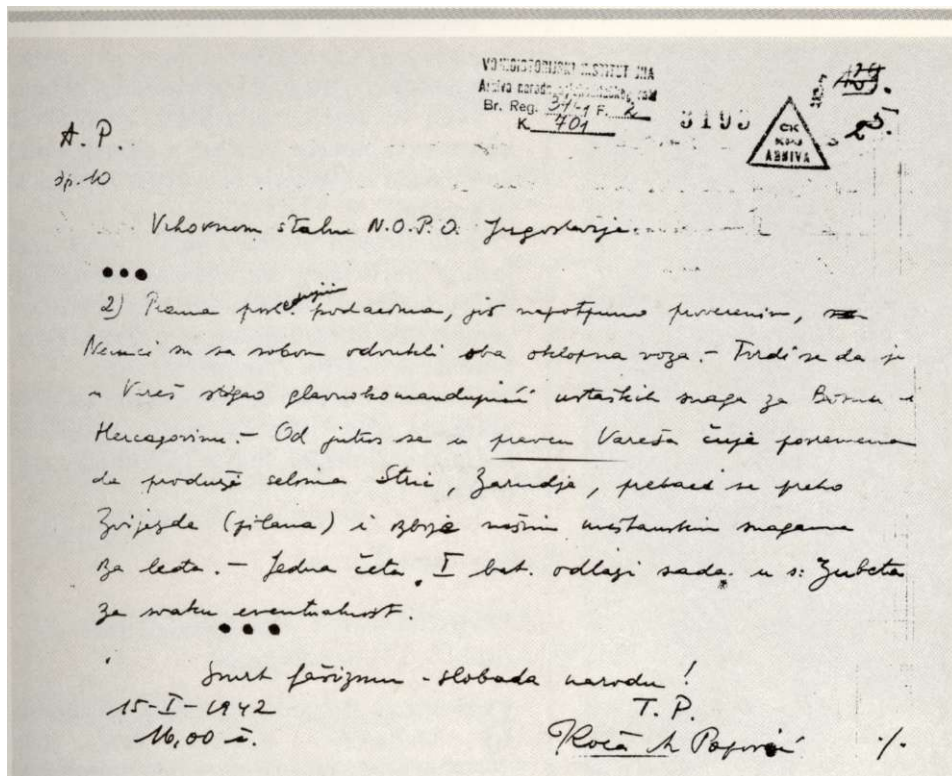 VOJNOISTORIJSKI INSTITUT JNA
Arhiva
Br. Reg. F. 2
K. 701
3193
CK
ARHIVA
A. P.
Vrhovnom štabu N.O.P.O. Jugoslavije.
•••
2) Prema podacima, još nepotpuno proverenim,
Nemci su sa sobom odvukli oba oklopna voza. – Tvrdi se da je
u Vareš stigao glavnokomandujući ustaških snaga za Bosnu i
Hercegovinu. – Od jutros se u pravcu Vareša čuje povremena
da produže selima Stric, Zarudje, prebace se preko
Zvijezde (pilana) i našim snagama
za ledja. – Jedna četa I bat. odlazi sada u s: Zubeta
za svaku eventualnost.
•••
Smrt fašizmu – sloboda narodu!
15-I-1942
T. P.
16,00 č.
Koča Popović
./.